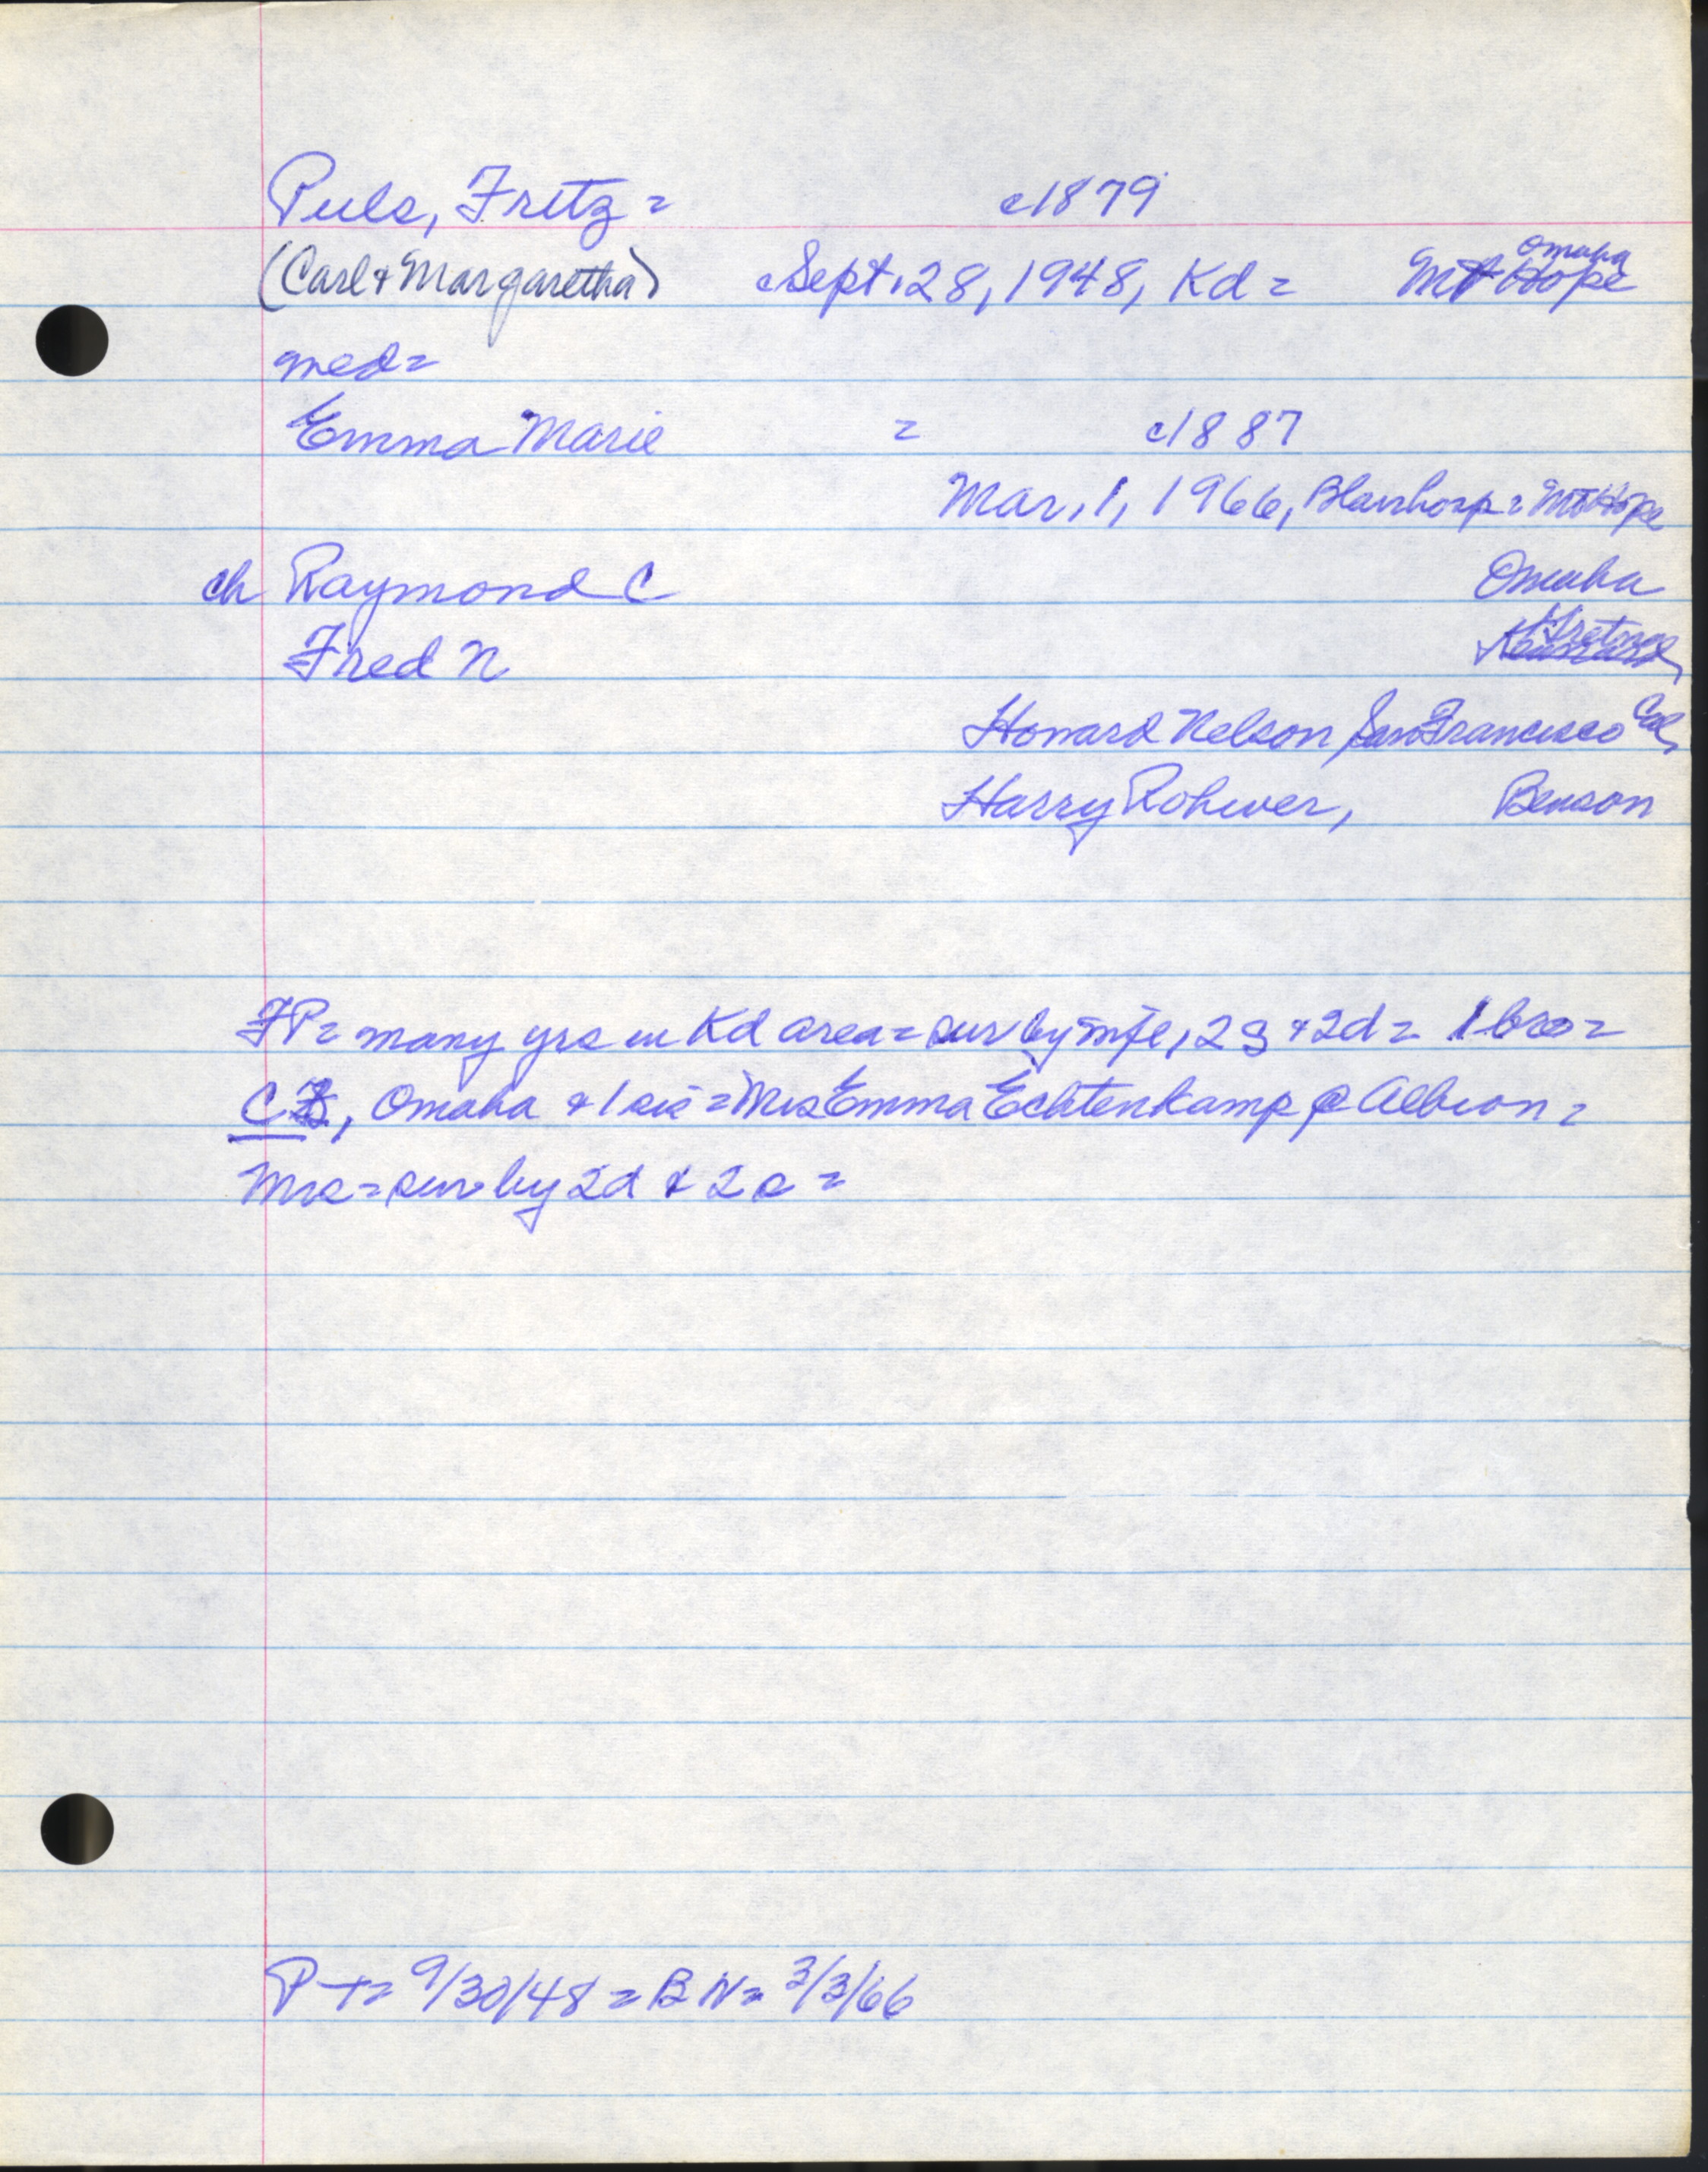 Puls, Fritz = c1879
(Carl & Margaretha) Sept. 28, 1948, Kd = Mt Hope Omaha
med=
Emma Marie = c1887
Mar. 1, 1966, Blairhosp = Mt Hope
ch Raymond C Omaha
Fred N Gretna
Howard Nelson, San Francisco Cal,
Harry Rohwer, Benson
FP= many yrs in Kd area = sur by wife, 2s & 2d = 1 bro =
C, Omaha & 1 sis = Mrs Emma Echtenkamp @ Albion =
Mrs = sur by 2d & 2s =
P-t= 9/30/48 = BN= 3/3/66